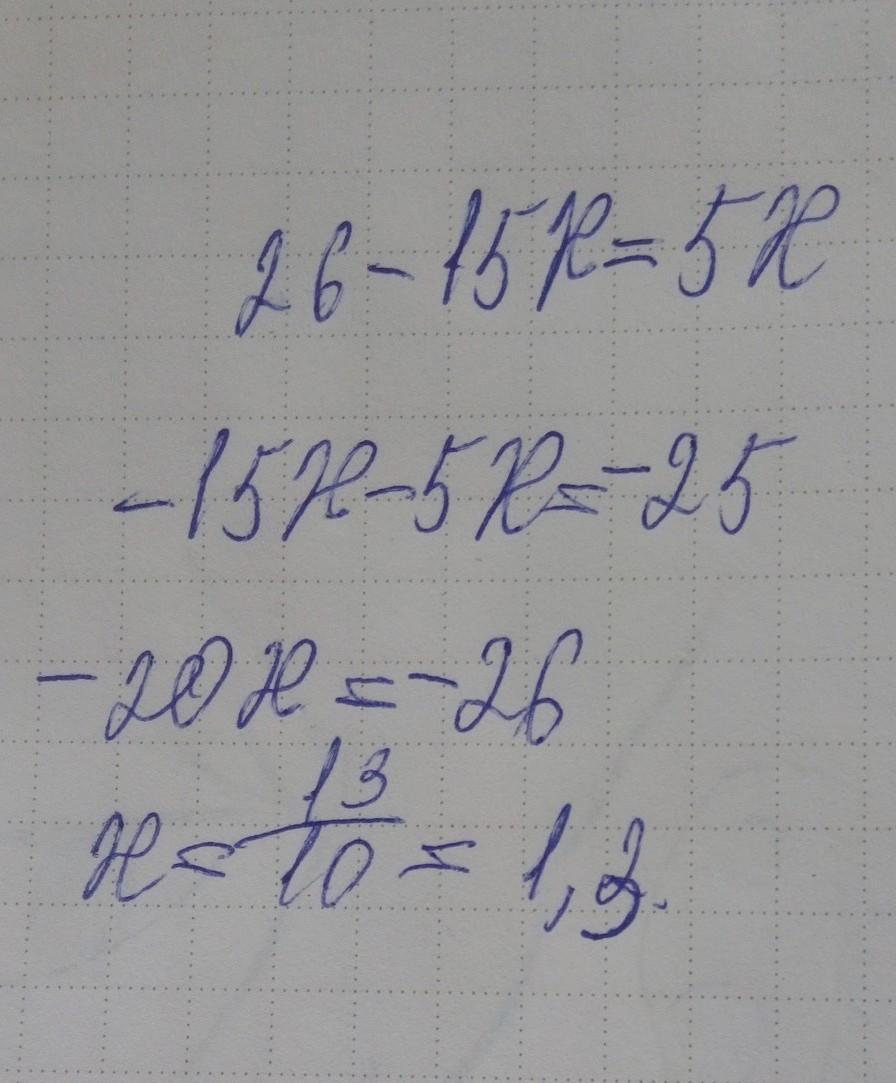 26-15x=5x
-15x-5x=-25
-20x=-26
x=13/10=1,3.